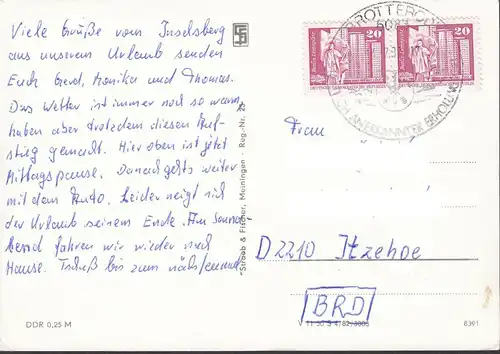 Viele Grüße vom Inselsberg
aus unserem Urlaub senden
Euch Gerd, Monika und Thomas.
Das Wetter ist immer noch so warm,
haben aber trotzdem diesen Auf-
stieg gemacht. Hier oben ist jetzt
Mittagspause. Danach gehts weiter
mit dem Auto. Leider neigt sich
der Urlaub seinem Ende. Am Sonna-
bend fahren wir wieder nach
Hause. Tschüß bis zum nächstenmal
DDR 0,25 M
Straub & Fischer, Meiningen · Reg.-Nr.
BROTTERODE
20
20
DEUTSCHE DEMOKRATISCHE REPUBLIK
DEUTSCHE DEMOKRATISCHE REPUBLIK
ANERKANNTER ERHOLUNGS
Frau
D 2210 Itzehoe
BRD
V 11 50 S 4/82/3005
8391